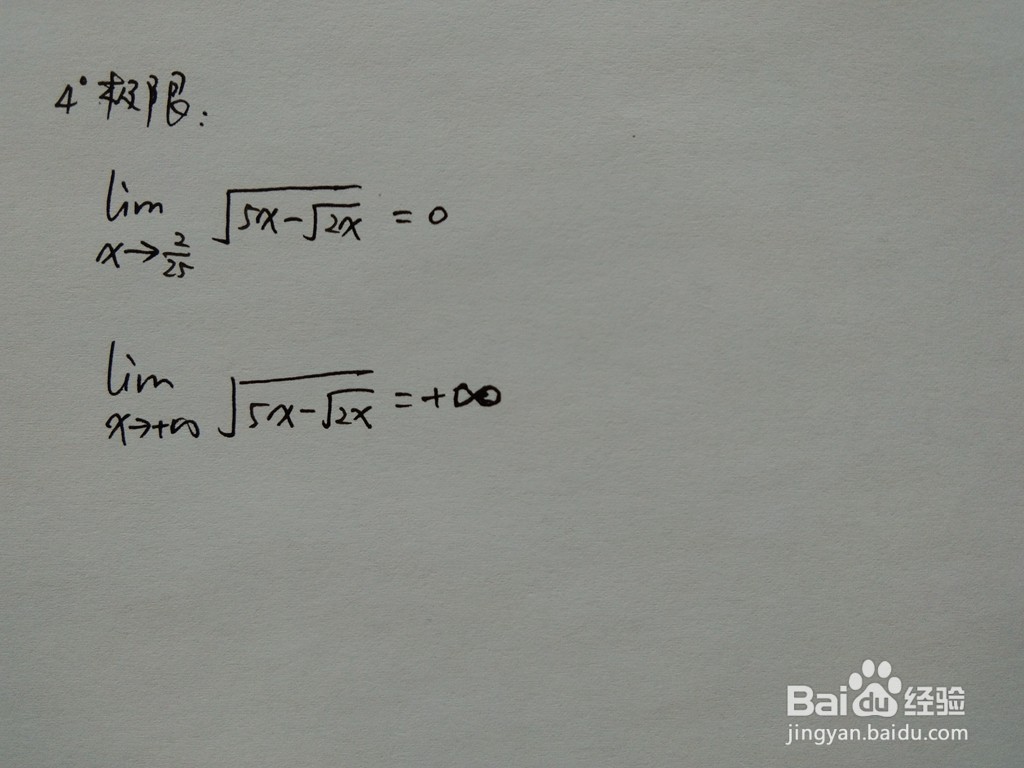 4° 极限:
lim x→2/25 √(5x-√(2x)) = 0
lim x→+∞ √(5x-√(2x)) = +∞
Baidu经验
jingyan.baidu.com